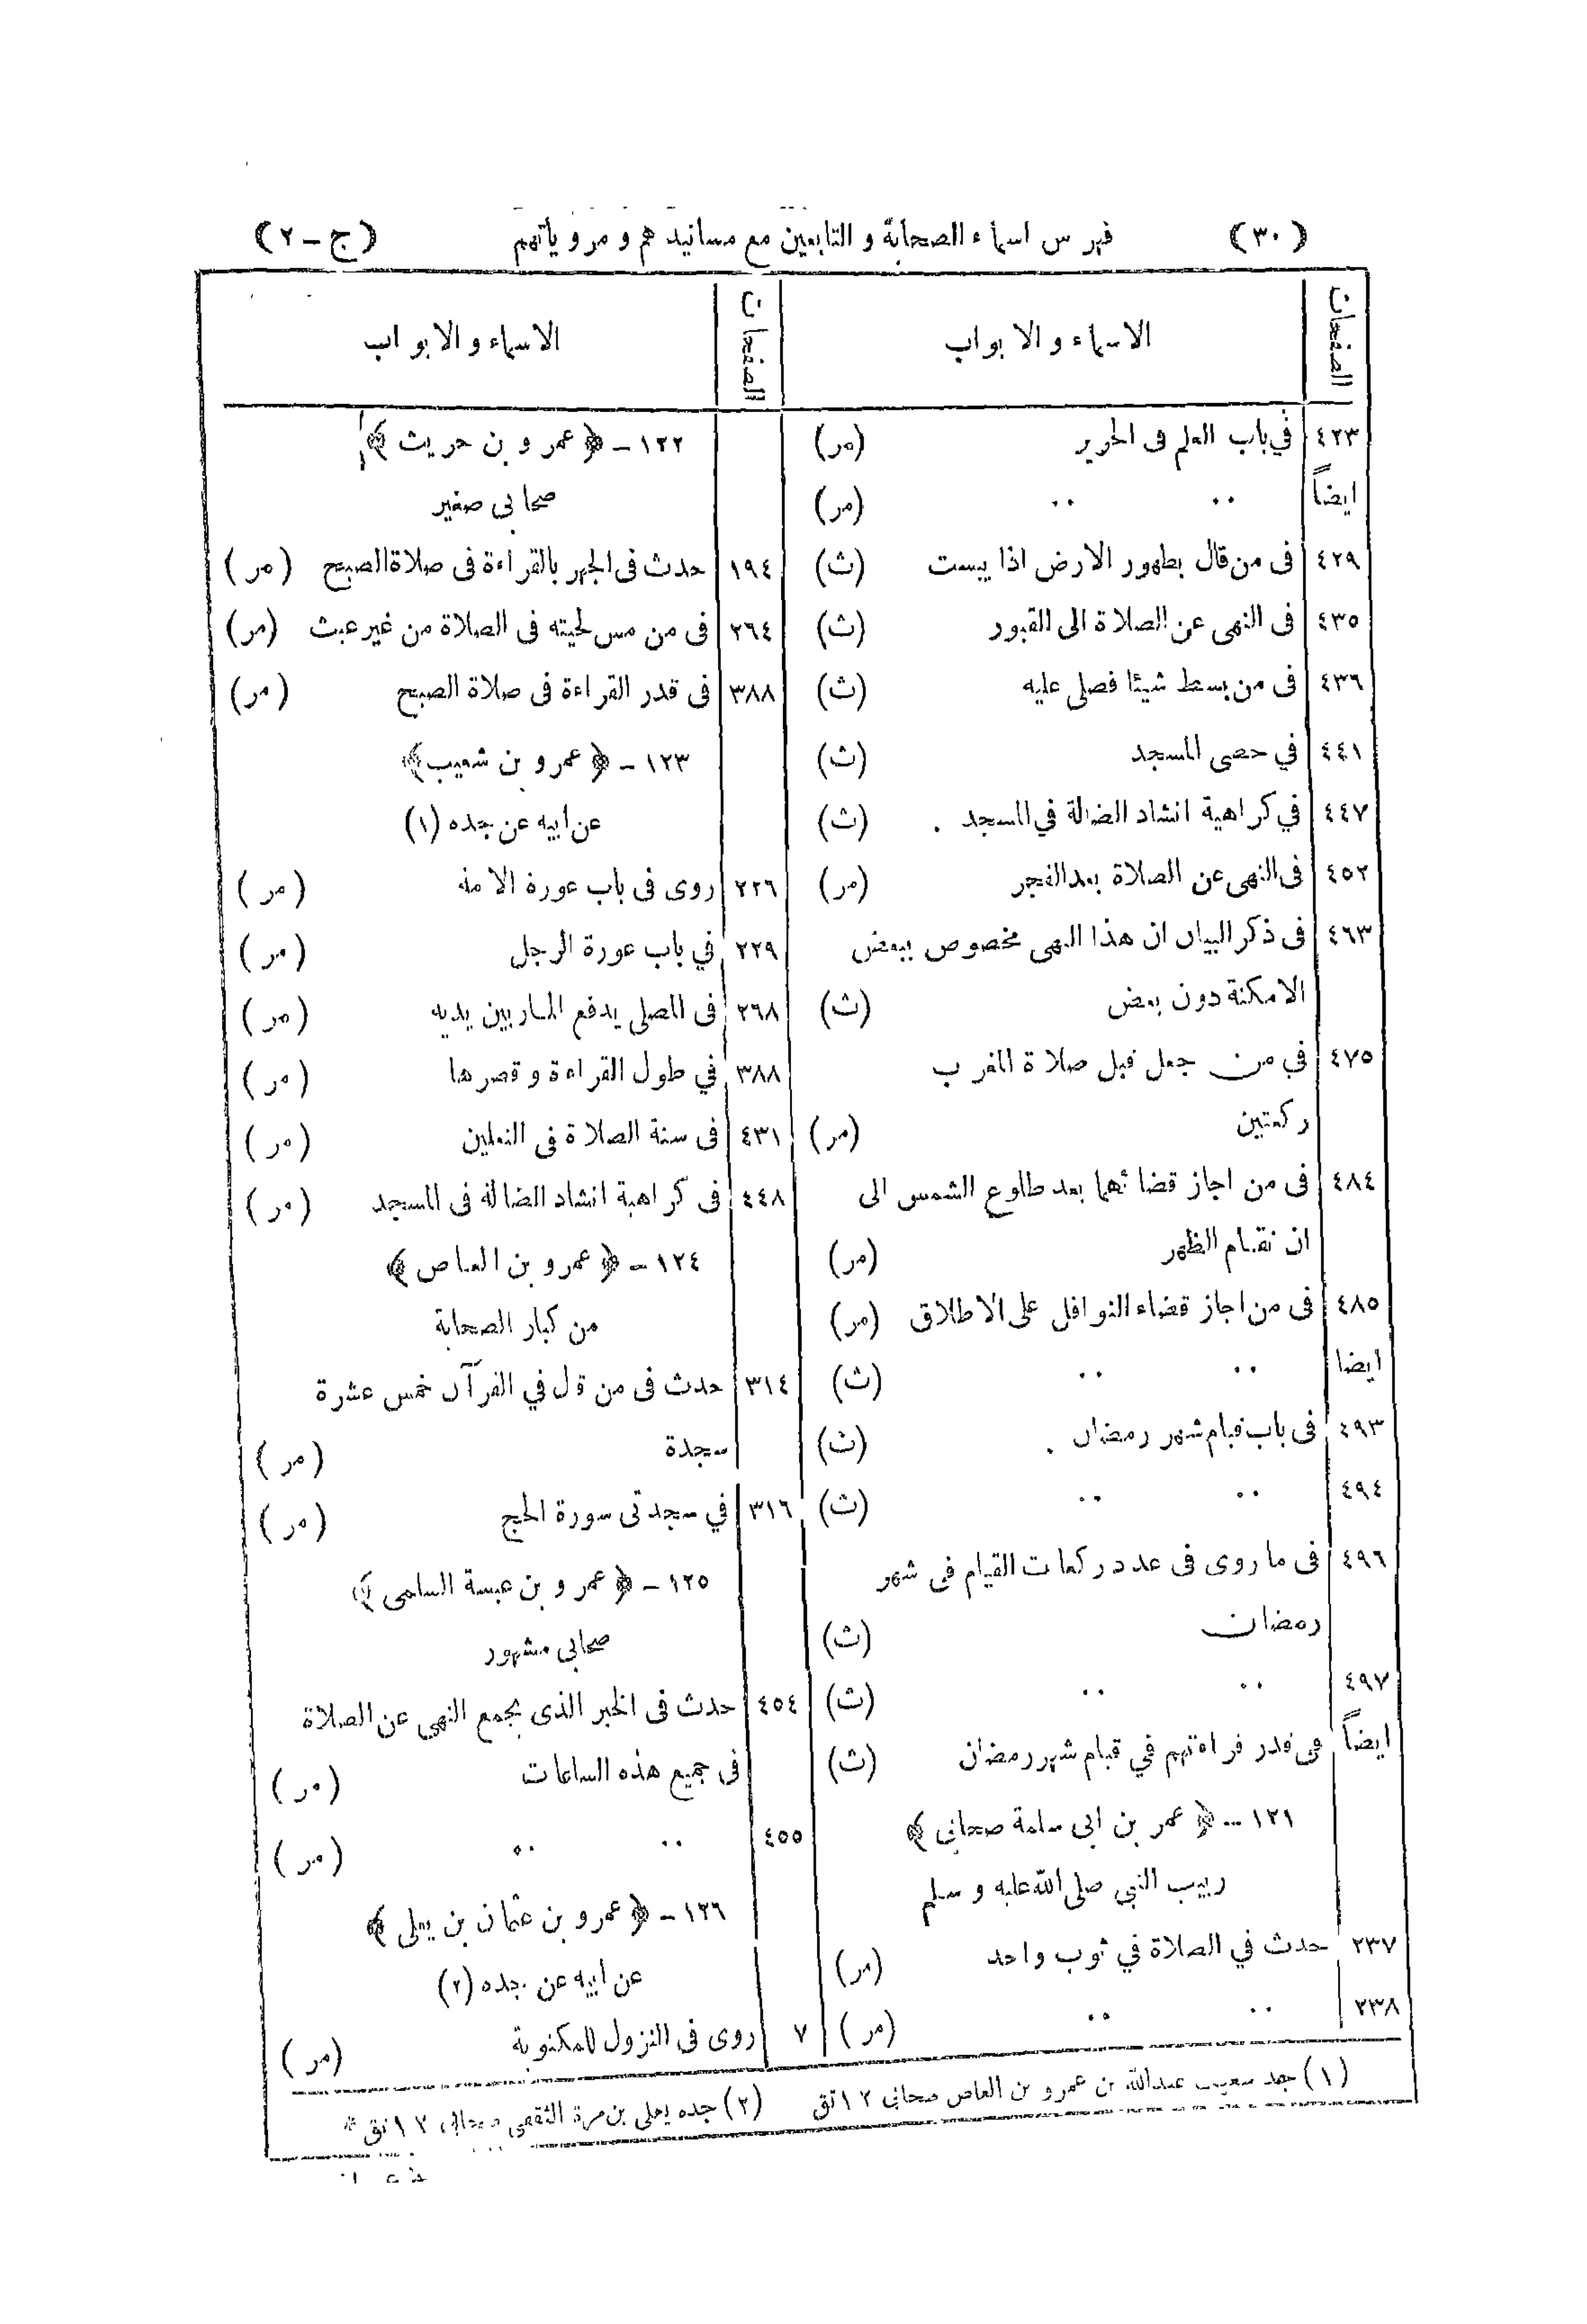 (٣٠) فهرس اسماء الصحابة و التابعين مع مسانيدهم و مروياتهم (ج-٢)
الصفحات
الاسماء و الابواب
٤٢٣ في باب العلم فى الحرير (مر)
ايضاً ٠٠ ٠٠ (مر)
٤٢٩ فى من قال بطهور الارض اذا يبست (ث)
٤٣٥ فى النهى عن الصلاة الى القبور (ث)
٤٣٦ فى من بسط شيئا فصلى عليه (ث)
٤٤١ في حصى المسجد (ث)
٤٤٧ في كراهية انشاد الضالة في المسجد . (ث)
٤٥٢ فى النهى عن الصلاة بعد الفجر (مر)
٤٦٣ فى ذكر البيان ان هذا النهى مخصوص ببعض
الامكنة دون بعض (ث)
٤٧٥ في من جعل قبل صلاة المغرب
ركعتين (مر)
٤٨٤ فى من اجاز قضائهما بعد طلوع الشمس الى
ان تقام الظهر (مر)
٤٨٥ فى من اجاز قضاء النوافل على الاطلاق (مر)
ايضا ٠٠ ٠٠ (ث)
٤٩٣ فى باب قيام شهر رمضان . (ث)
٤٩٤ ٠٠ ٠٠ (ث)
٤٩٦ فى ما روى فى عدد ركعات القيام فى شهر
رمضان (ث)
٤٩٧ ٠٠ ٠٠ (ث)
ايضاً فى قدر قراءتهم في قيام شهر رمضان (ث)
١٢١ - ﴿ عمر بن ابى سلمة صحابى ﴾
ربيب النبي صلى الله عليه و سلم
٢٣٧ حدث في الصلاة في ثوب واحد (مر)
٢٣٨ ٠٠ ٠٠ (مر)
الصفحات
الاسماء و الابواب
١٢٢ - ﴿ عمرو بن حريث ﴾
صحابى صغير
١٩٤ حدث فى الجهر بالقراءة فى صلاة الصبح (مر)
٢٦٤ فى من مس لحيته فى الصلاة من غير عبث (مر)
٣٨٨ فى قدر القراءة فى صلاة الصبح (مر)
١٢٣ - ﴿ عمرو بن شعيب ﴾
عن ابيه عن جده (١)
٢٢٦ روى فى باب عورة الامة (مر)
٢٢٩ في باب عورة الرجل (مر)
٢٦٨ فى المصلى يدفع المار بين يديه (مر)
٣٨٨ في طول القراءة و قصرها (مر)
٤٣١ فى سنة الصلاة فى النعلين (مر)
٤٤٨ فى كراهية انشاد الضالة فى المسجد (مر)
١٢٤ - ﴿ عمرو بن العاص ﴾
من كبار الصحابة
٣١٤ حدث فى من قال في القرآن خمس عشرة
سجدة (مر)
٣١٦ في سجدتى سورة الحج (مر)
١٢٥ - ﴿ عمرو بن عبسة السلمى ﴾
صحابى مشهور
٤٥٤ حدث فى الخبر الذى يجمع النهى عن الصلاة
فى جميع هذه الساعات (مر)
٤٥٥ ٠٠ ٠٠ (مر)
١٢٦ - ﴿ عمرو بن عثمان بن يعلى ﴾
عن ابيه عن جده (٢)
٧ روى فى النزول للمكتوبة (مر)
(١) جد شعيب عبدالله بن عمرو بن العاص صحابى ١٢ تق (٢) جده يعلى بن مرة الثقفى صحابى ١٢ تق